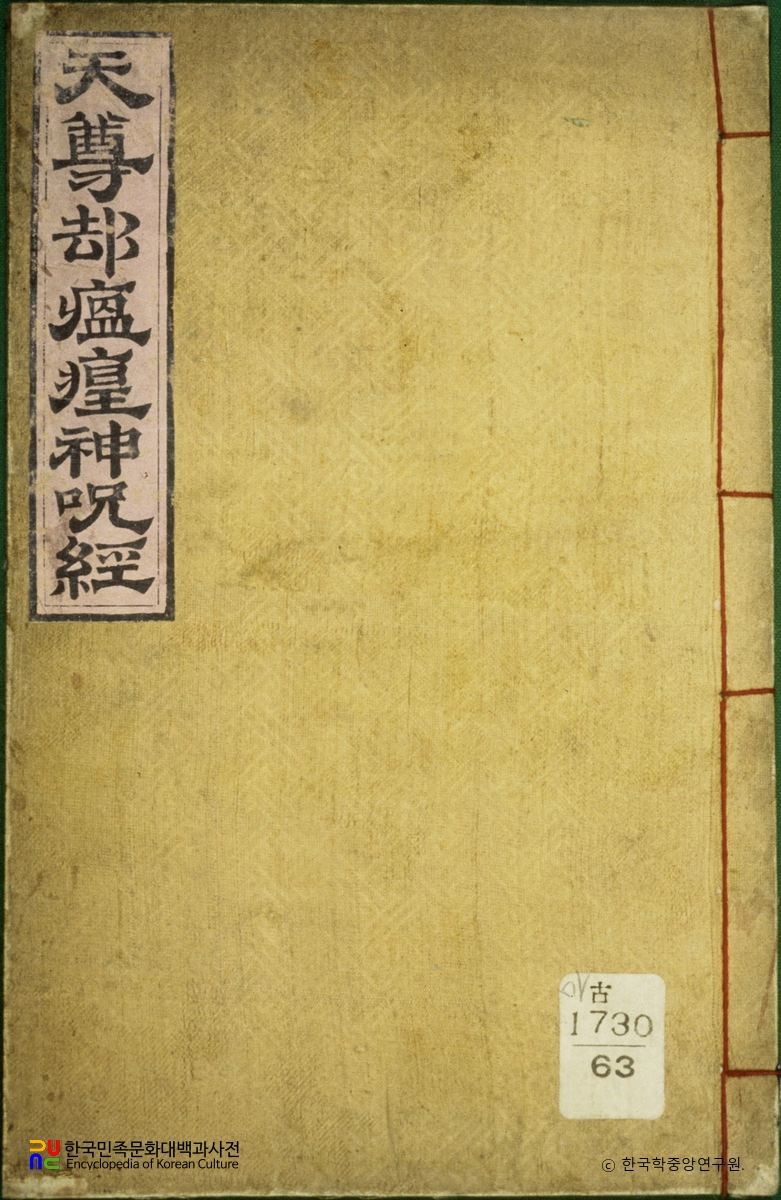 天尊却瘟瘟神呪經
古
1730
63
한국민족문화대백과사전
Encyclopedia of Korean Culture
ⓒ 한국학중앙연구원.